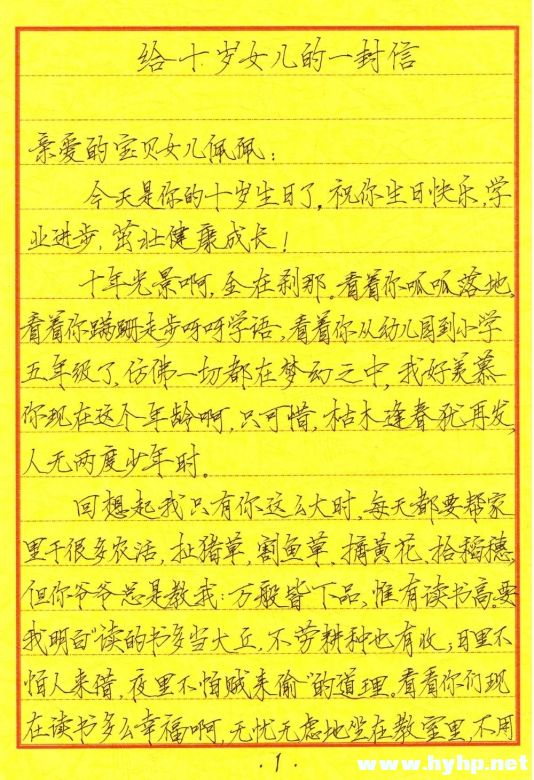 给十岁女儿的一封信
亲爱的宝贝女儿佩佩:
今天是你的十岁生日了,祝你生日快乐,学
业进步,茁壮健康成长!
十年光景啊,全在刹那。看着你呱呱落地,
看着你蹒跚走步呀呀学语,看着你从幼儿园到小学
五年级了,仿佛一切都在梦幻之中,我好羡慕
你现在这个年龄啊,只可惜,枯木逢春犹再发,
人无两度少年时。
回想起我只有你这么大时,每天都要帮家
里干很多农活,扯猪草,割鱼草,摘黄花、拾稻穗,
但你爷爷总是教我:万般皆下品,惟有读书高。要
我明白“读的书多当大丘,不劳耕种也有收;日里不
怕人来借,夜里不怕贼来偷”的道理。看看你们现
在读书多么幸福啊,无忧无虑地坐在教室里,不用
·1·
www.hyhp.net